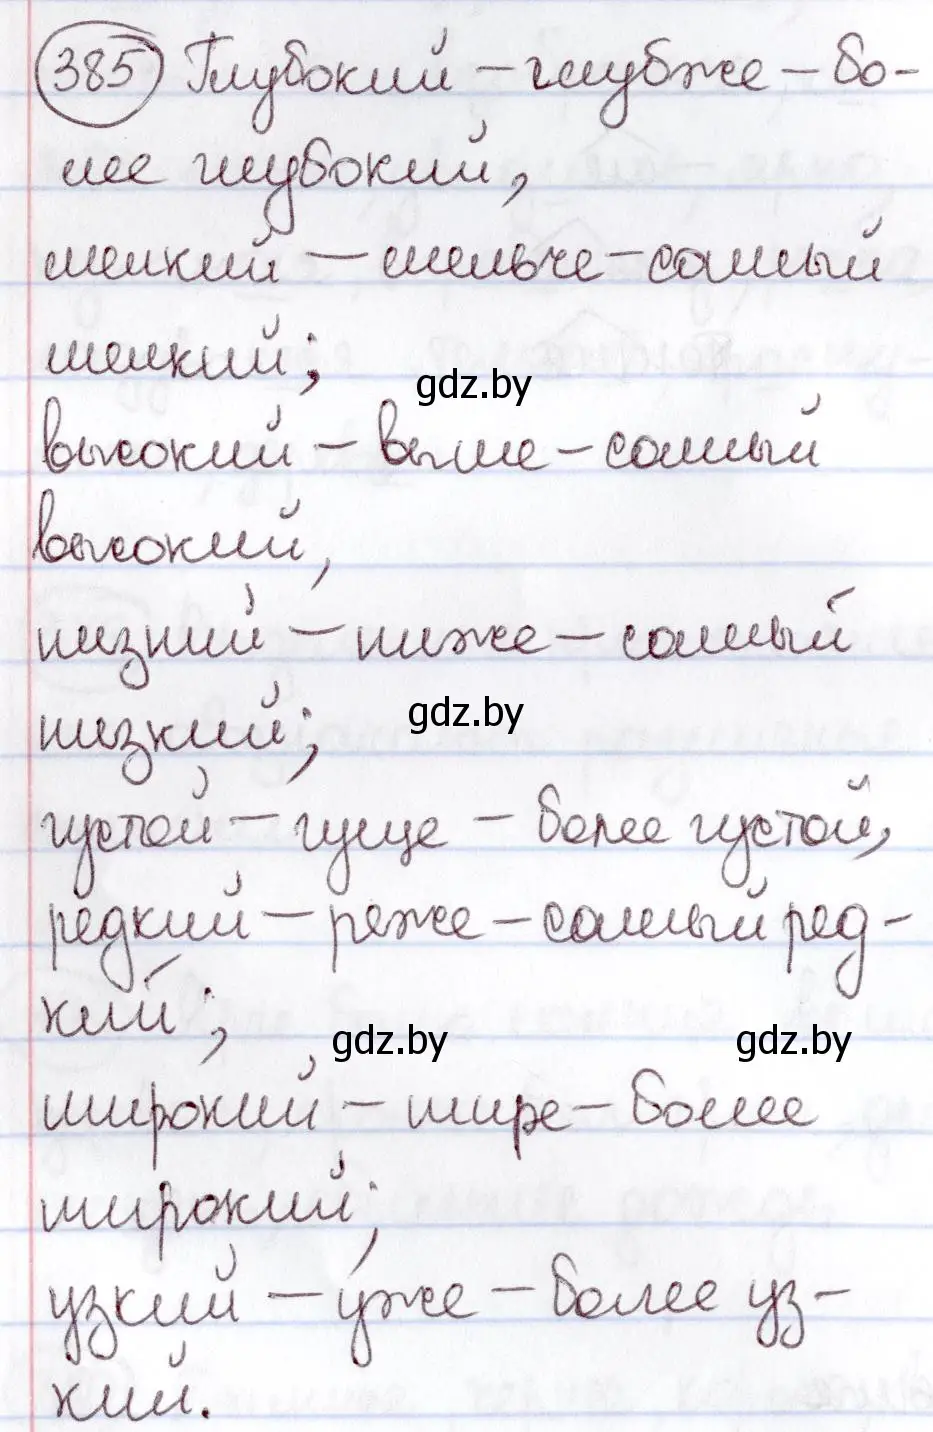 385 Глубокий – глубже – бо-
лее глубокий,
мелкий – мельче – самый
мелкий;
gdz.by
высокий – выше – самый
высокий,
низний – ниже – самый
низкий;
gdz.by
густой – гуще – более густой,
редкий – реже – самый ред-
кий;
gdz.by gdz.by
широкий – шире – более
широкий;
узкий – у́же – более уз-
кий.